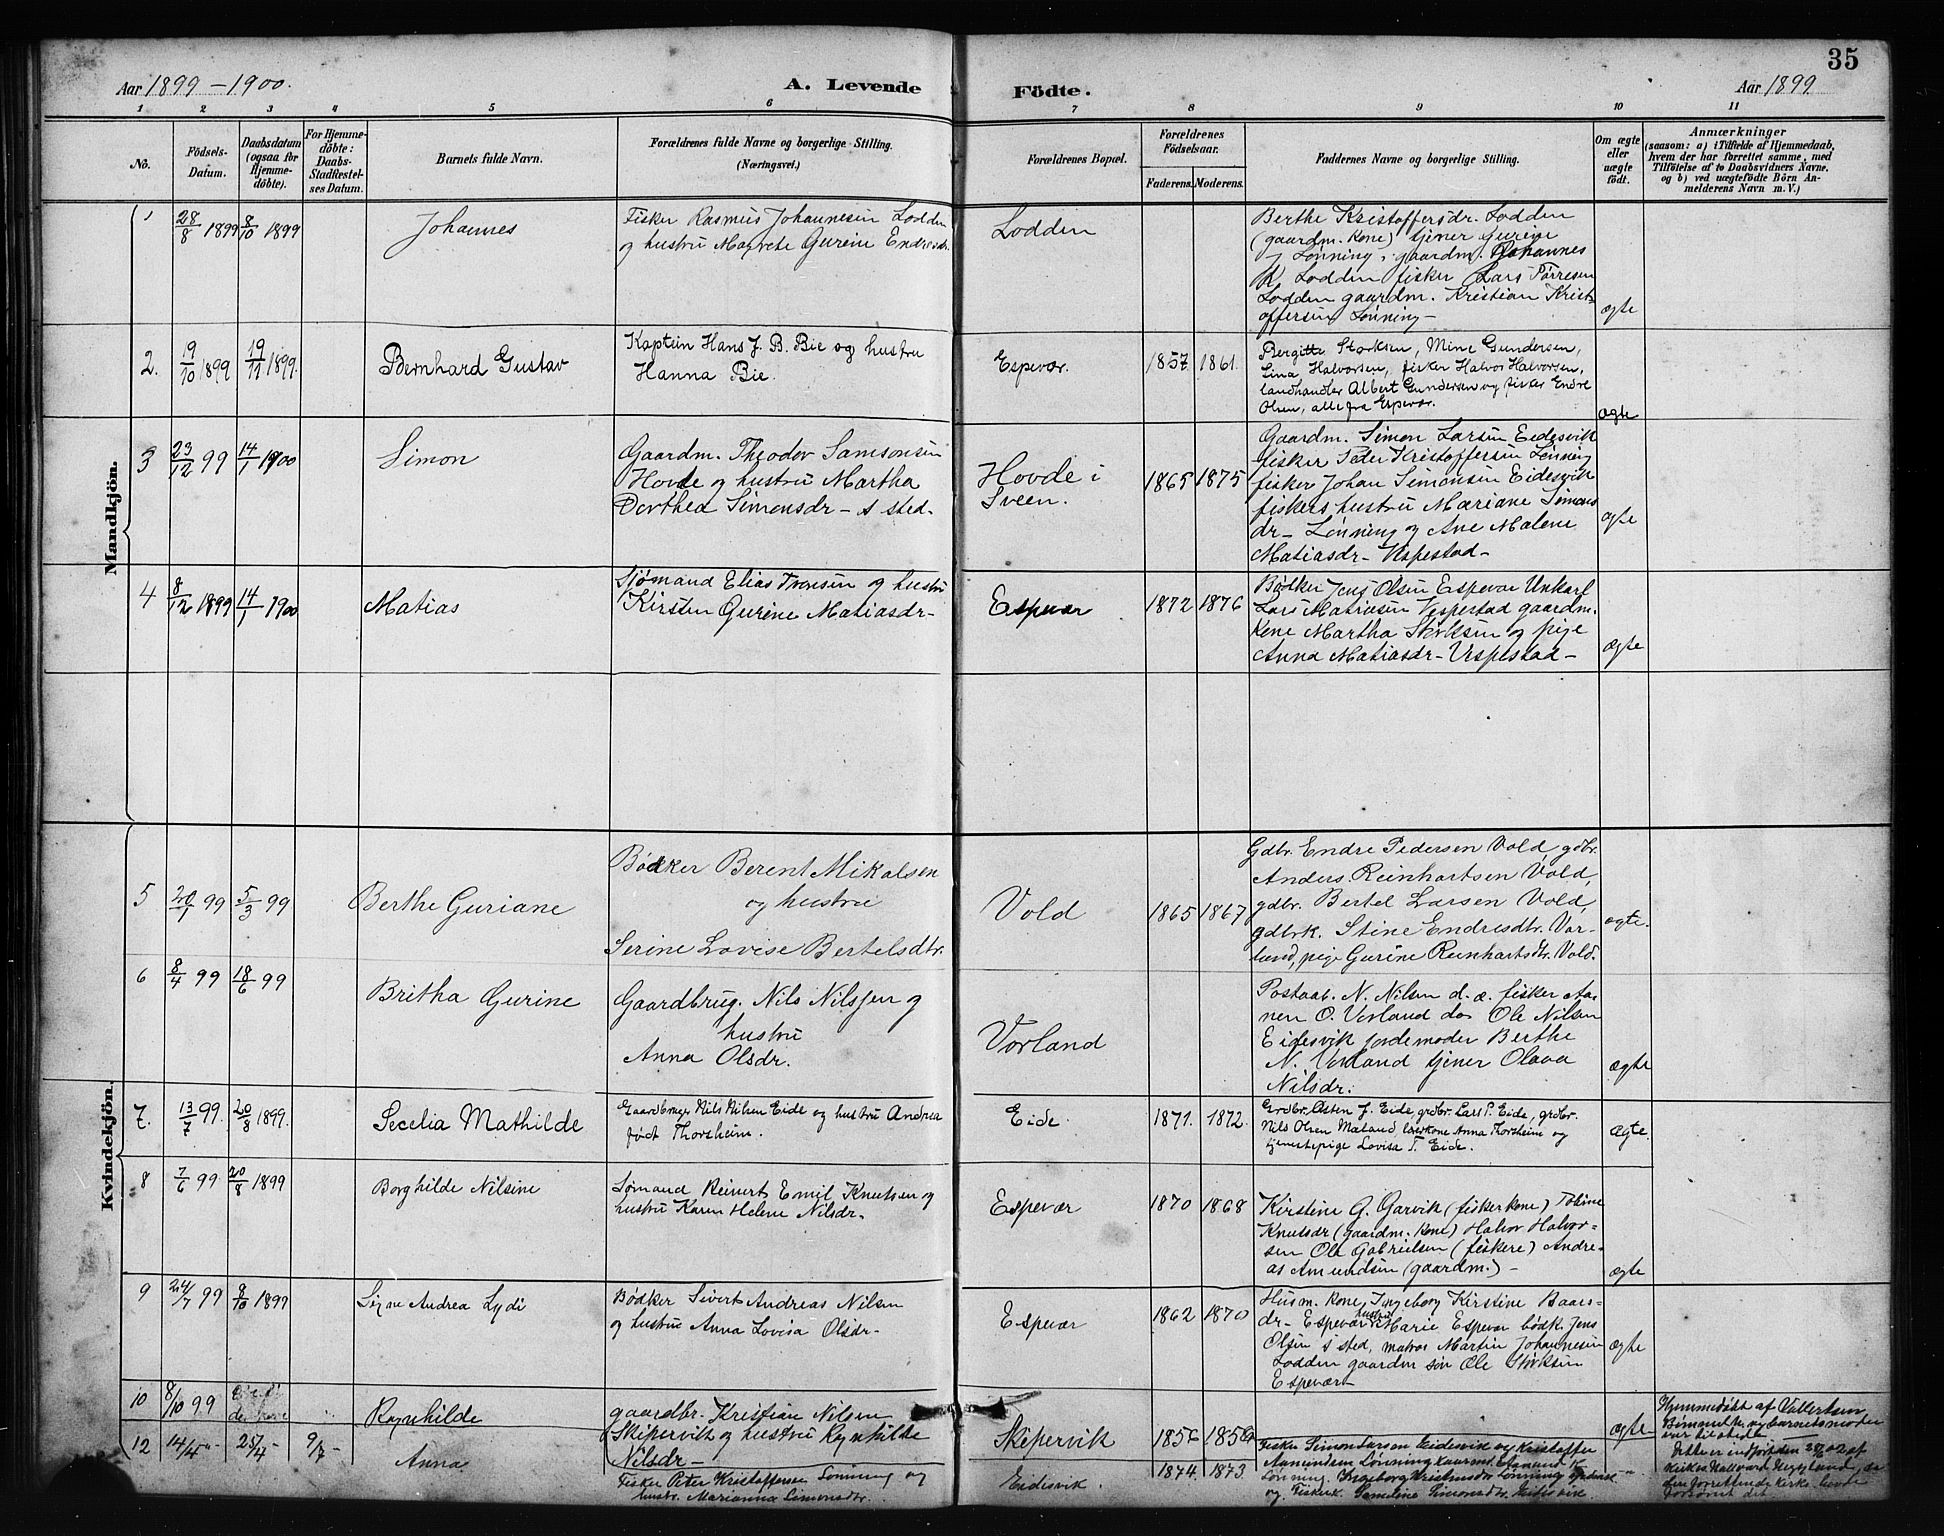 35
Aar 1899-1900.
A. Levende Födte.
Aar 1899
1 2 3 4 5 6 7 8 9 10 11
No.
Födsels-Datum.
Daabsdatum (ogsaa for Hjemme-döbte).
For Hjemme-döbte: Daabs-Stadfæstelses Datum.
Barnets fulde Navn.
Forældrenes fulde Navne og borgerlige Stilling.
(Næringsvei.)
Forældrenes Bopæl.
Forældrenes Födselsaar.
Faderens. Moderens.
Faddernes Navne og borgerlige Stilling.
Om ægte eller uægte födt.
Anmærkninger
(saasom: a) i Tilfælde af Hjemmedaab, hvem der har forrettet samme, med Tilföielse af to Daabsvidners Navne, og b) ved uægtefödte Börn Anmelderens Navn m. V.)
Mandkjön.
28/8 1899 8/10 1899 Johannes
Fisker Rasmus Johannesen Lodden
og hustru Margrete Gurine Endresdr.
Lodden
Berthe Kristoffersdr. Lodden
(gaardm. kone) tjener Gurine
Lønning, gaardm. Johannes
K Lodden fisker Lars Tørresen
Lodden gaardm. Kristian Krist-
offersen Lønning-
ægte
2. 19/10 1899 19/11 1899. Bernhard Gustav
Kaptein Hans J. B. Bie og hustru
Hanna Bie.
Espevær. 1857 1861
Bergitte Storksen, Mine Gundersen,
Lina Halvorsen, fisker Halvor Halvorsen,
landhandler Albert Gundersen og fisker Endre
Olsen, alle fra Espevær.
ægte
3 23/12 99 14/1 1900 Simon
Gaardm. Theodor Samsonsen
Hovde og hustru Martha
Dorthea Simonsdr- s sted-
Hovde i
Sveen. 1865 1875
Gaardm. Simon Larsen Eidesvik
fisker Peder Kristoffersen Lønning
fisker Johan Simonsen Eidesvik
fiskers hustru Mariane Simons
dr- Lønning og Ane Malene
Matiasdr- Vespestad-
ægte
4 8/12 1899 14/1 1900 Matias
Sjømand Elias Iversen og hustru
Kirsten Gurine Matiasdr-
Espevær 1872 1876
Bødker Jens Olsen Espevær Unkarl
Lars Matiasen Vespestad gaardm.
kone Martha Størksen og pige
Anna Matiasdr- Vespestad-
ægte
Kvindekjön.
5 20/1 99 5/3 99 Berthe Guriane
Bødker Berent Mikalsen
og hustru
Serine Lovise Bertelsdtr.
Vold 1865 1867
Gdbr. Endre Pedersen Vold, gdbr.
Anders Reinhartsen Vold,
gdbr. Bertel Larsen Vold,
gdbrk. Stine Endresdtr. Vor-
land, pige Gurine Reinhartsdtr. Vold.
ægte.
6 8/4 99 18/6 99 Britha Gurine
Gaardbrug. Nils Nilssen og
hustru
Anna Olsdr.
Vorland
Postaab. N. Nilsen d. æ. fisker Aa-
nen O. Vorland do Ole Nilsen
Eidesvik jordemoder Berthe
N. Vorland tjener Olava
Nilsdr.
ægte
7. 13/7 99. 20/8 1899. Secelia Mathilde
Gaardbruger Nils Nilsen Eide og hustru Andrea
født Thorsheim.
Eide. 1871. 1872.
Grdbr. Østen J. Eide, grdbr. Lars P. Eide, grdbr.
Nils Olsen Mæland lærkone Anna Thorsheim og
tjenestepige Lovisa T. Eide.
ægte.
8 7/6 99 20/8 1899 Borghilde Nilsine
Sømand Reinert Emil Knutsen og
hustru Karen Helene Nilsdr.
Espevær 1870 1868
Kirstine G. Garvik (fiskerkone) Tobine
Knutsdr (gaardm. kone) Halvor Halvor-
sen Ole Gabrielsen (fiskere) Andre-
as Amundsen (gaardm.)-
ægte
9 24/7 99 8/10 1899 Signe Andrea Lydi
Bødker Sivert Andreas Nilsen
og hustru Anna Lovisa Olsdr-
Espevær 1862 1870
Husm. kone, Ingeborg Kirstine Baars-
dr- Espevær hustru Marie Espevær bødk. Jens
Olsen s sted, matros Martin Johannesen
Lodden gaardm søn Ole Størksen
Espevær-
ægte
10 8/10 99 Ragnhilde
gaardbr. Kristian Nilsen
Skipervik og hustru Ragnhilde
Nilsdr-
Skipervik 1856
ægte
Hjemmedøbt af Vallertsen
Bømandk. og barnets moder
var tilstede
12 14/4 25/4 9/7 Anna
Fisker Peter Kristoffersen Lønning og
hustr. Marianna Simonsdtr.
Eidesvik. 1874. 1873
Fisker Simon Larsen Eidesvik og Kristoffer
Aamundsen Lønning, gaardm. Aamund K
Lønning. Ingeborg Kristensdtr Lønning
og Fiskerk. Sameline Simonsdtr. Eidesvik.
Dette er indført den 28/4 02 af